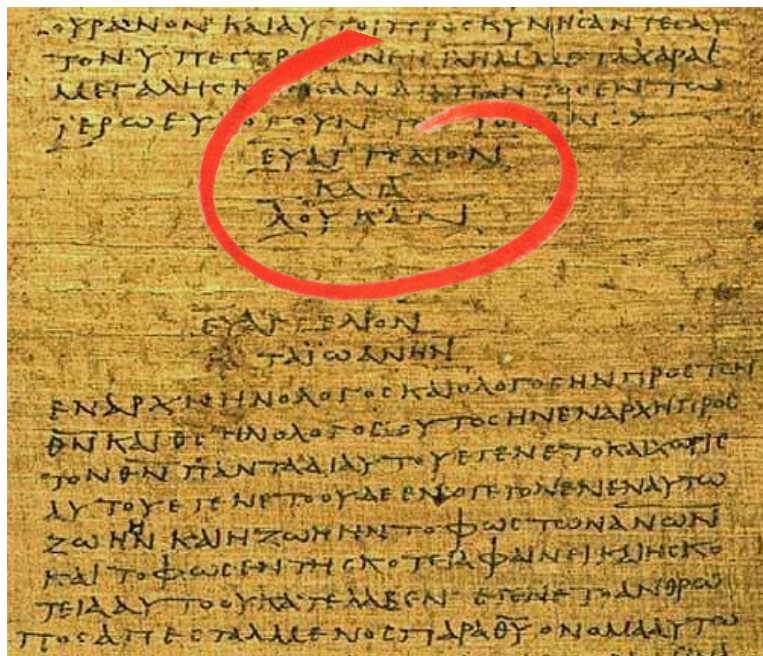 ΟΥΡΑΝΟΝ ΚΑΙ ΑΥΤΟΙ ΠΡΟϹΚΥΝΗϹΑΝΤΕϹ ΑΥ
ΤΟΝ ΥΠΕϹΤΡΕΨΑΝ ΜΕΤΑ ΧΑΡΑϹ
ΜΕΓΑΛΗϹ ΗϹΑΝ ΔΙΑΠΑΝΤΟϹ ΕΝ ΤΩ
ΙΕΡΩ ΕΥΛΟΓΟΥΝΤΕϹ ΤΟΝ ΘΝ
ΕΥΑΓΓΕΛΙΟΝ
ΚΑΤΑ
ΛΟΥΚΑΝ
ΕΥΑΓΓΕΛΙΟΝ
ΚΑΤΑ ΙΩΑΝΗΝ
ΕΝ ΑΡΧΗ ΗΝ Ο ΛΟΓΟϹ ΚΑΙ Ο ΛΟΓΟϹ ΗΝ ΠΡΟϹ ΤΟΝ
ΘΝ ΚΑΙ ΘϹ ΗΝ Ο ΛΟΓΟϹ ΟΥΤΟϹ ΗΝ ΕΝ ΑΡΧΗ ΠΡΟϹ
ΤΟΝ ΘΝ ΠΑΝΤΑ ΔΙ ΑΥΤΟΥ ΕΓΕΝΕΤΟ ΚΑΙ ΧΩΡΙϹ
ΑΥΤΟΥ ΕΓΕΝΕΤΟ ΟΥΔΕ ΕΝ Ο ΓΕΓΟΝΕΝ ΕΝ ΑΥΤΩ
ΖΩΗ ΗΝ ΚΑΙ Η ΖΩΗ ΗΝ ΤΟ ΦΩϹ ΤΩΝ ΑΝΩΝ
ΚΑΙ ΤΟ ΦΩϹ ΕΝ ΤΗ ϹΚΟΤΕΙΑ ΦΑΙΝΕΙ ΚΑΙ Η ϹΚΟ
ΤΕΙΑ ΑΥΤΟ ΟΥ ΚΑΤΕΛΑΒΕΝ ΕΓΕΝΕΤΟ ΑΝΘΡΩ
ΠΟϹ ΑΠΕϹΤΑΛΜΕΝΟϹ ΠΑΡΑ ΘΥ ΟΝΟΜΑ ΑΥΤΩ